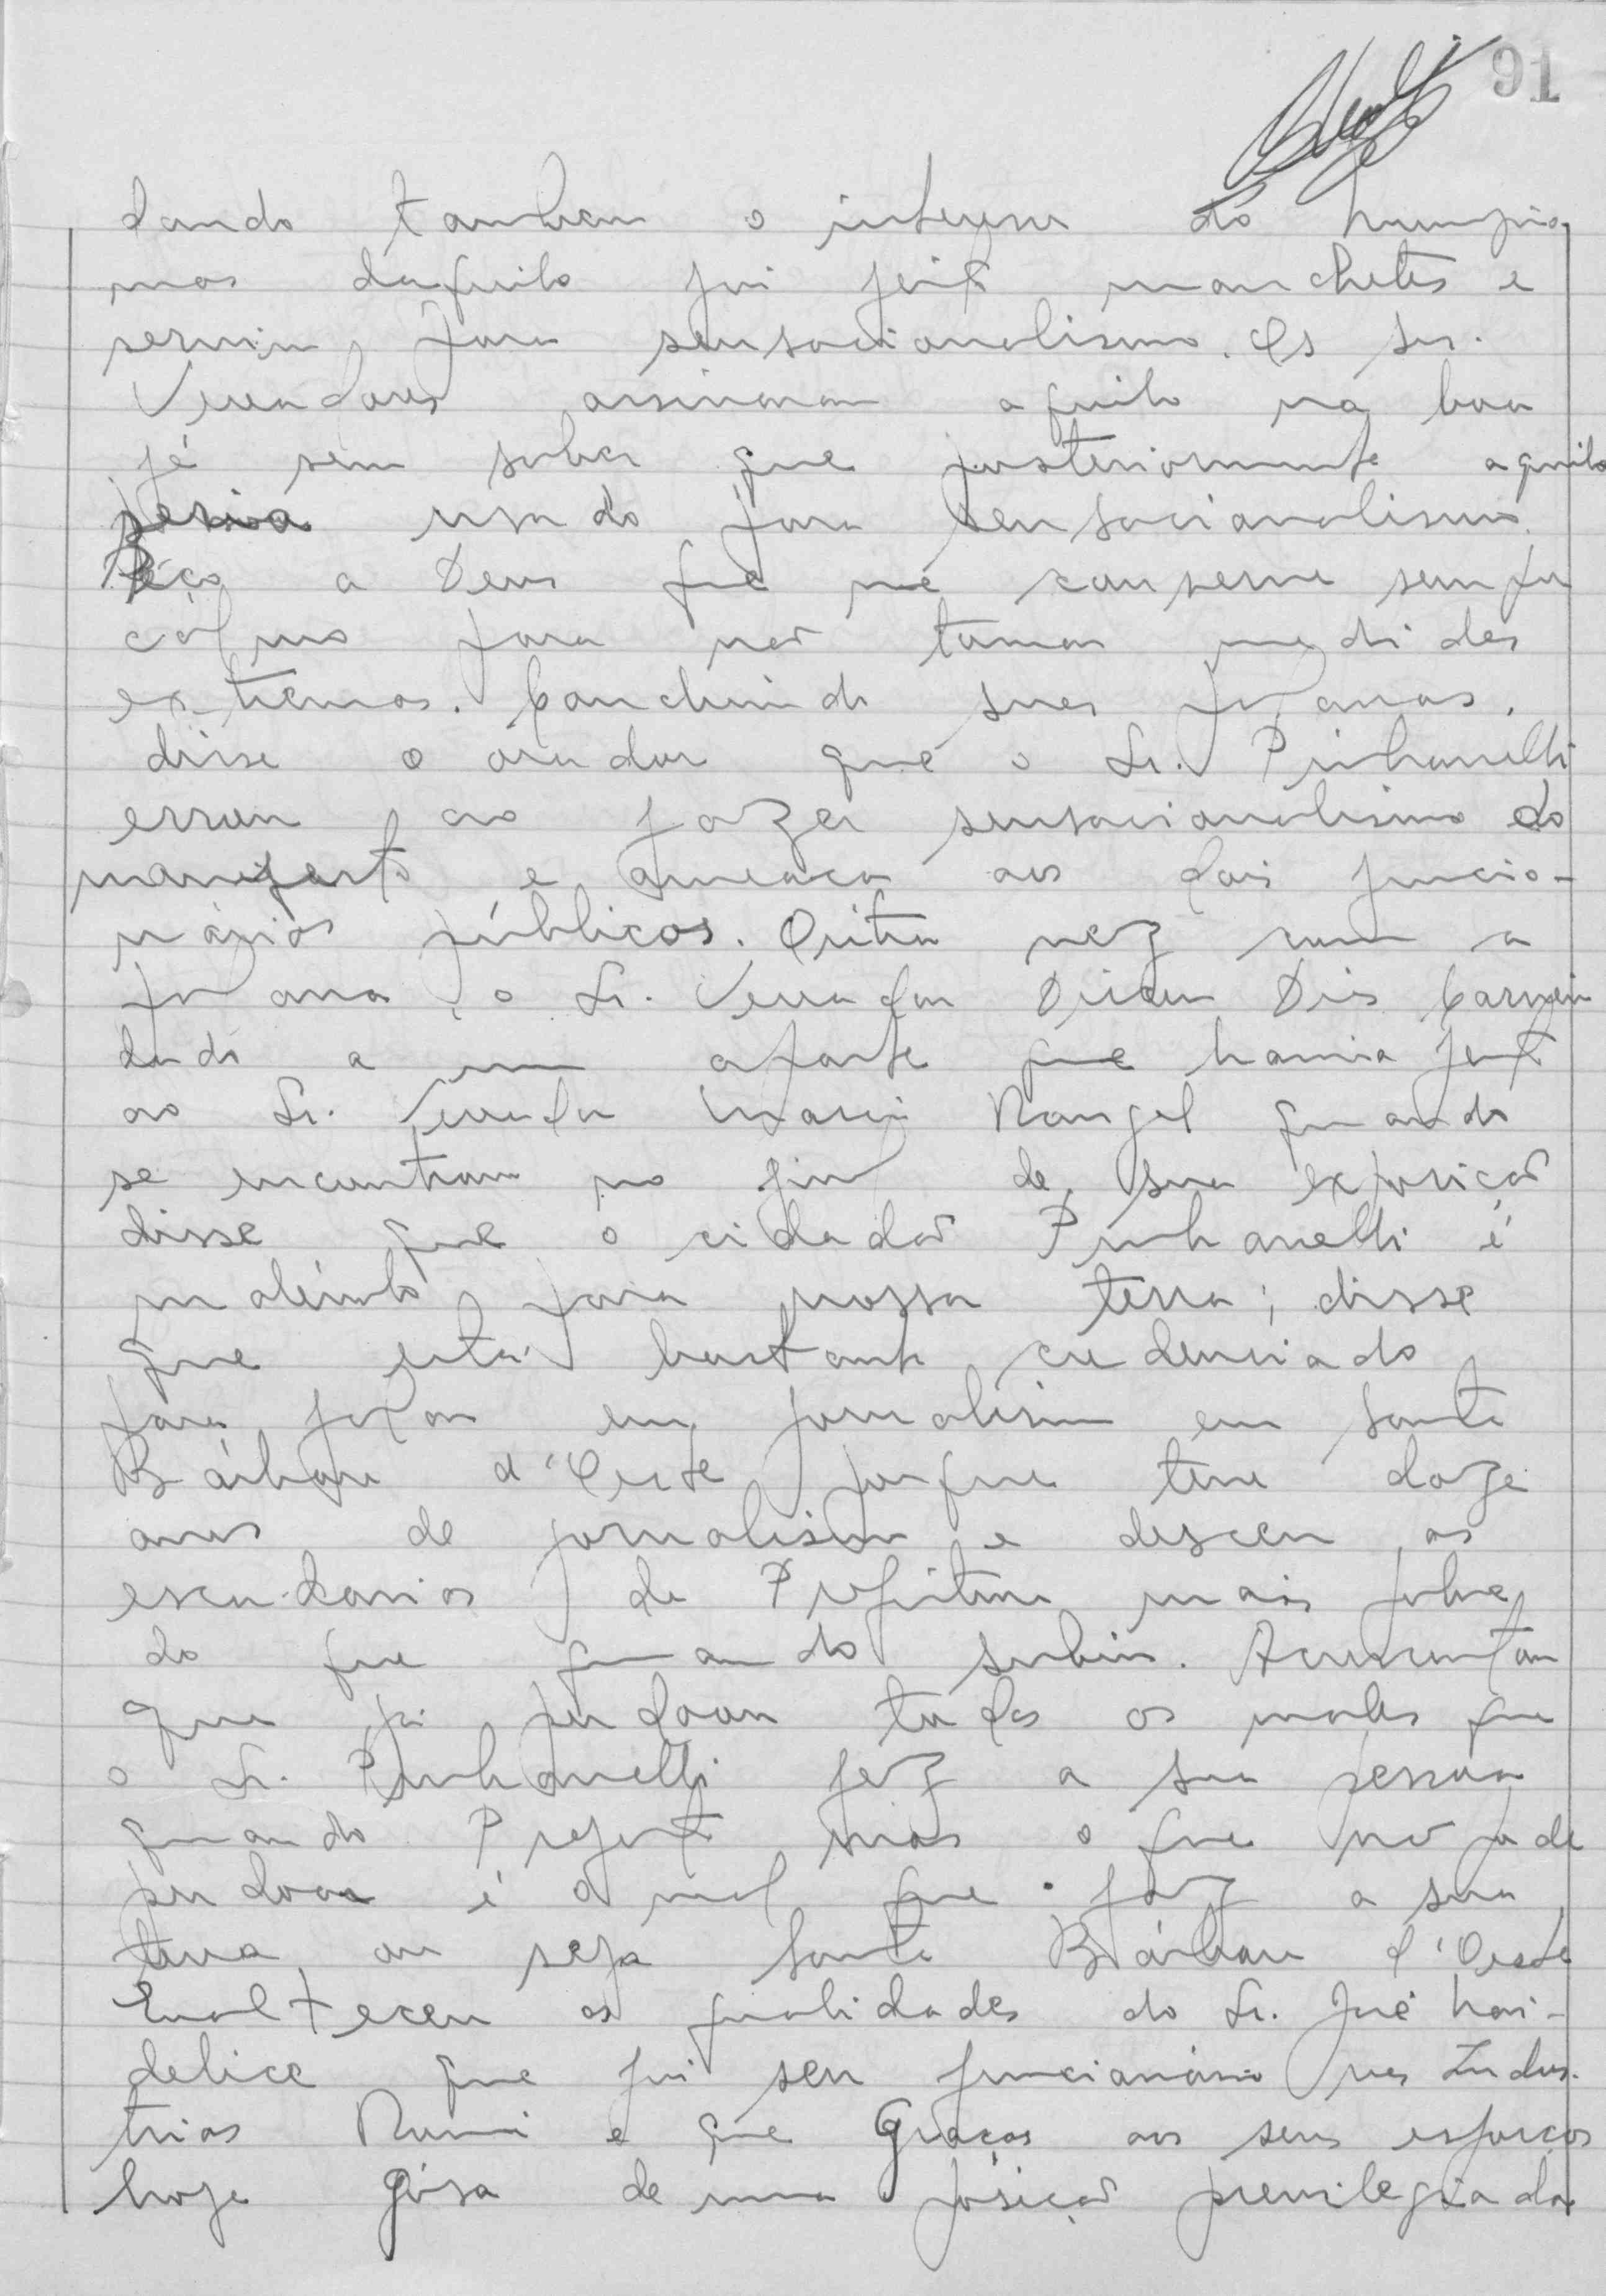 91
dando tambem o interesse do municipio
mas daquilo foi feito manchetes e
serviu para sensacionalismo. Os srs.
Vereadores assinaram aquilo na boa
fé sem saber que posteriormente aquilo
seria usado para sensacionalismo.
Peço a Deus que me conserve sempre
calmo para não tomar medidas
extremas. Concluindo suas palavras,
disse o orador que o Sr. Pinhanelli
errou ao fazer sensacionalismo do
manifesto e ameaçar aos dois funcio-
nários públicos. Outra vez com a
palavra o Sr. Vereador Dirceu Dias Carneiro
dando a um aparte que havia feito
ao Sr. Vereador Rangel quando
se encontrava no final de sua exposição
disse que o cidadão Pinhanelli é
maléfico para nossa terra; disse
que está bastante credenciado
para falar em jornalismo em Santa
Bárbara d'Oeste porque teve doze
anos de jornalismo e desceu as
escadarias da Prefeitura mais pobre
do que quando subiu. Acrescentou
que já perdoou todos os males que
o Sr. Pinhanelli fez a sua pessoa
quando Prefeito mas o que não pode
perdoar é o mal que faz a sua
terra ou seja Santa Bárbara d'Oeste
Enalteceu as qualidades do Sr. José
que foi seu funcionário nas Indus-
trias Romi e que Graças aos seus esforços
hoje gosa de uma posição previlegiada